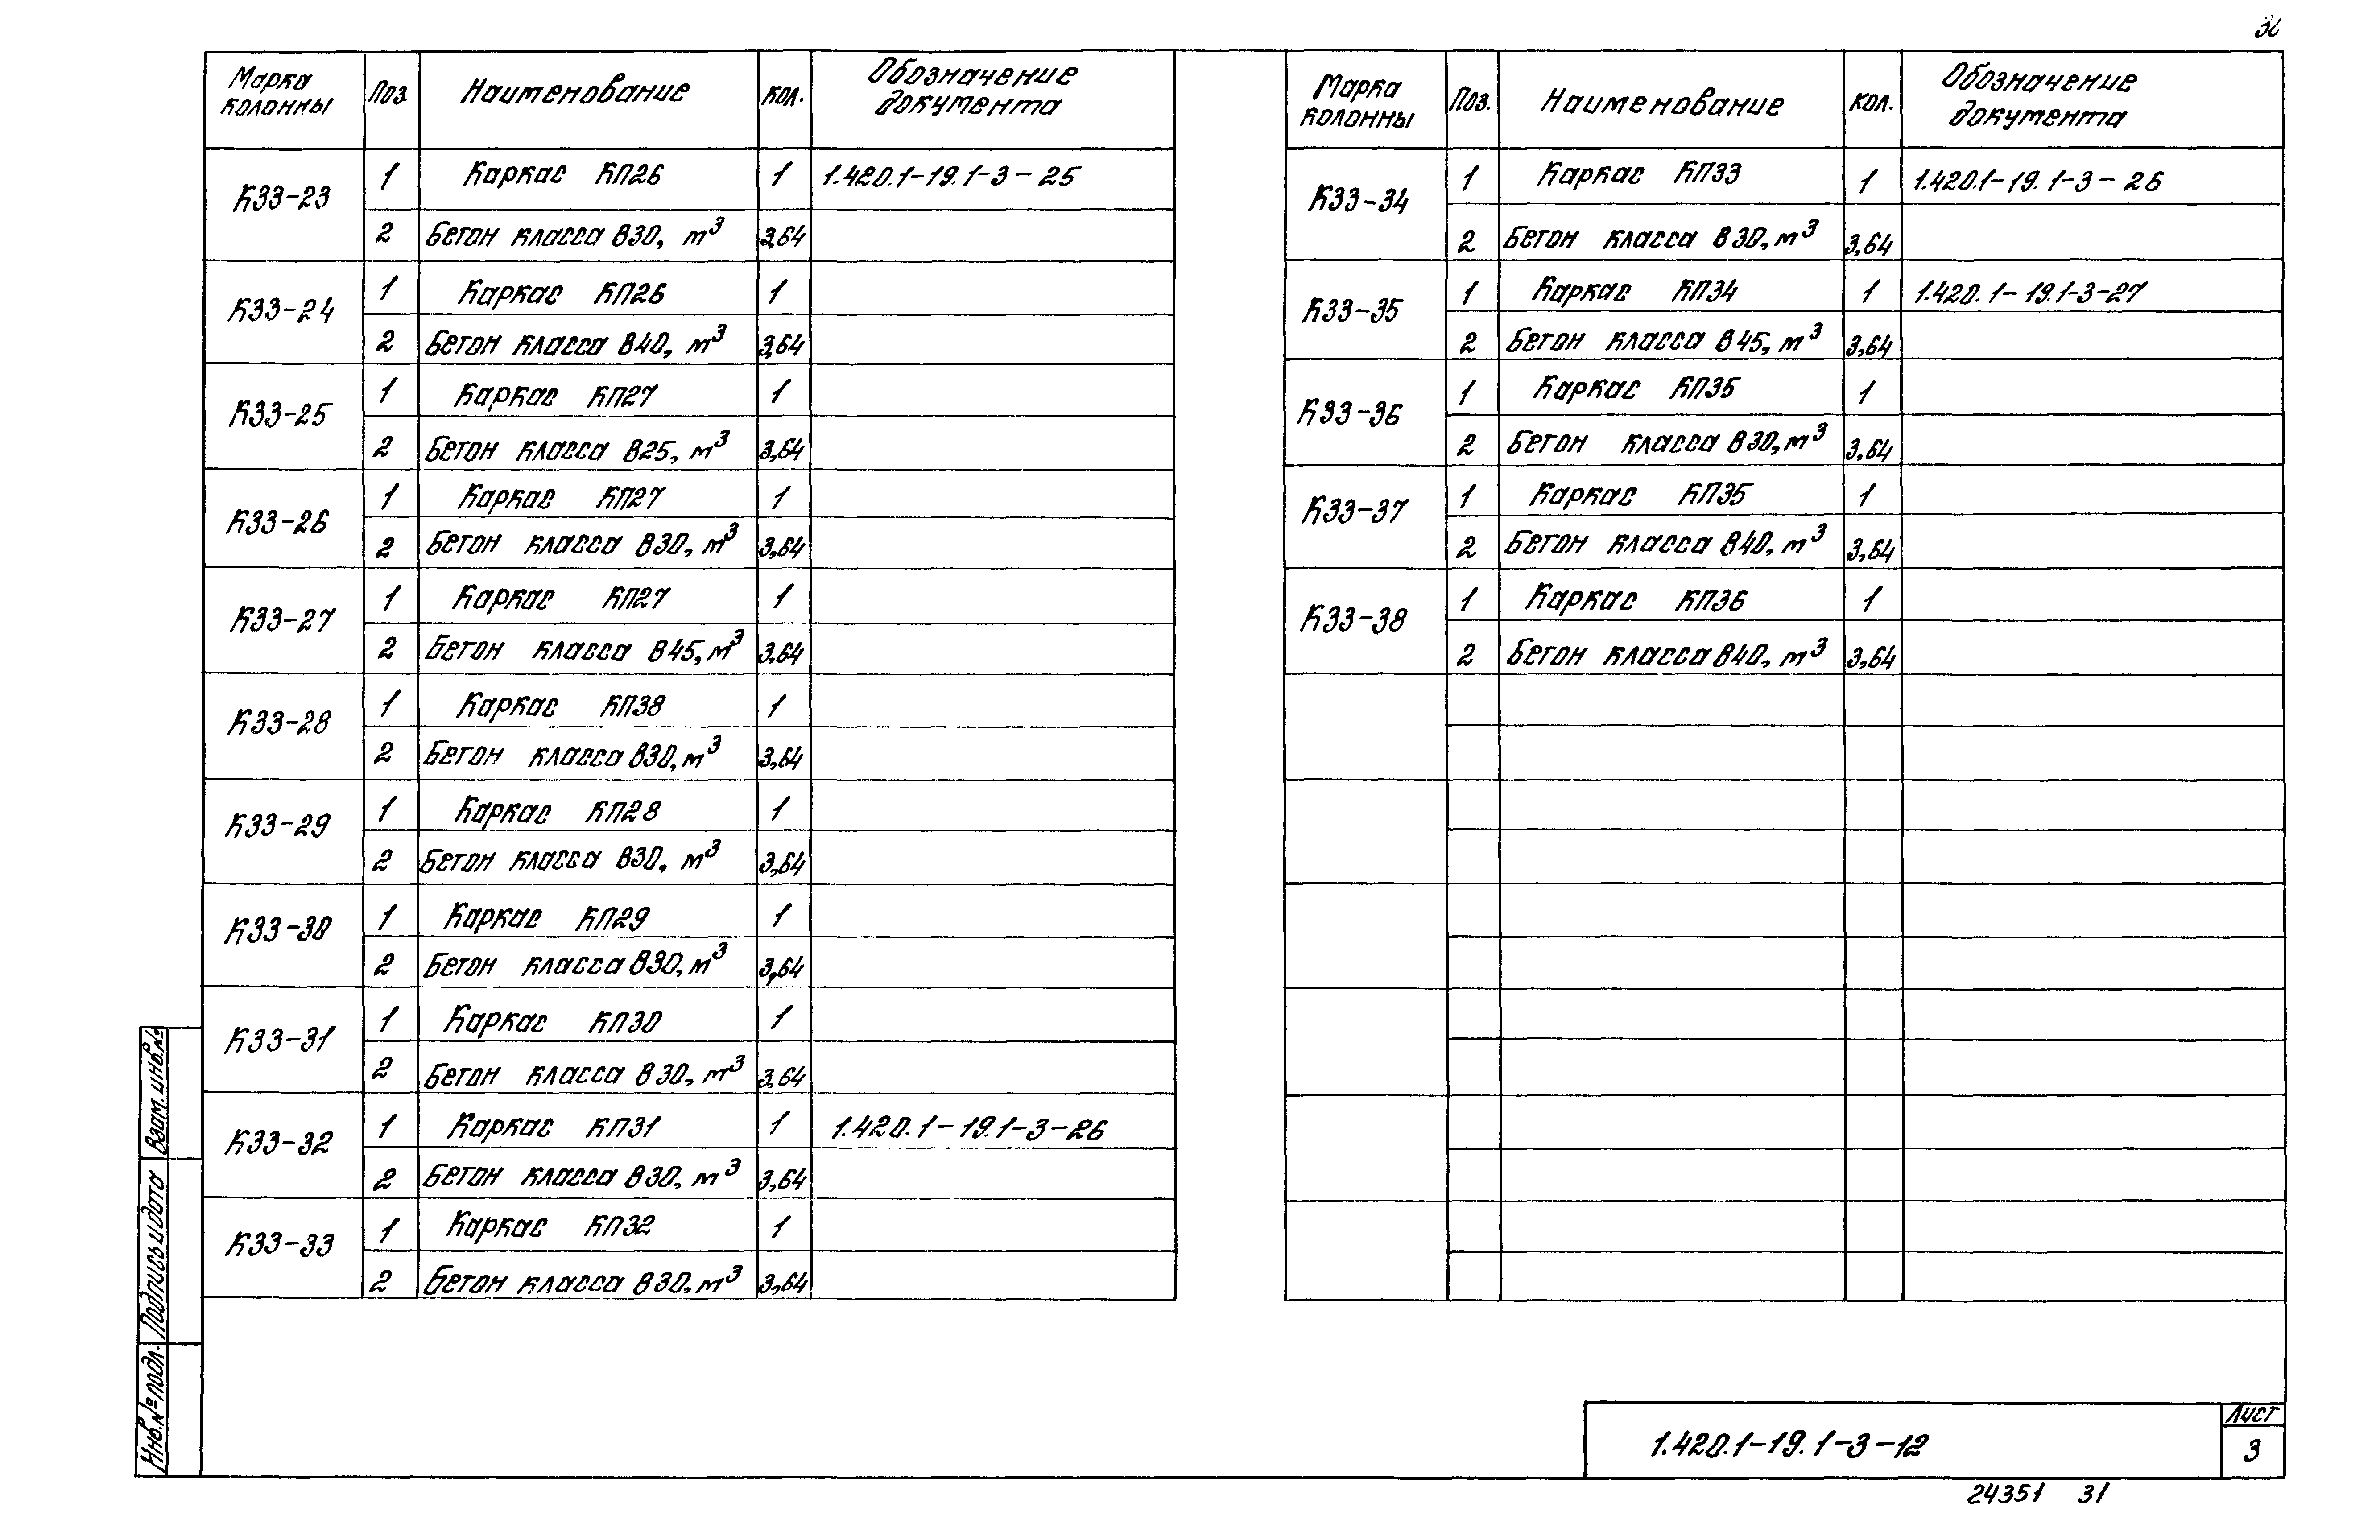 Марка колонны Поз. Наименование кол. Обозначение документа
К33-23 1 Каркас КП26 1 1.420.1-19.1-3-25
2 Бетон класса В30, м³ 3,64
К33-24 1 Каркас КП26 1
2 Бетон класса В40, м³ 3,64
К33-25 1 Каркас КП27 1
2 Бетон класса В25, м³ 3,64
К33-26 1 Каркас КП27 1
2 Бетон класса В30, м³ 3,64
К33-27 1 Каркас КП27 1
2 Бетон класса В45, м³ 3,64
К33-28 1 Каркас КП38 1
2 Бетон класса В30, м³ 3,64
К33-29 1 Каркас КП28 1
2 Бетон класса В30, м³ 3,64
К33-30 1 Каркас КП29 1
2 Бетон класса В30, м³ 3,64
К33-31 1 Каркас КП30 1
2 Бетон класса В30, м³ 3,64
К33-32 1 Каркас КП31 1 1.420.1-19.1-3-26
2 Бетон класса В30, м³ 3,64
К33-33 1 Каркас КП32 1
2 Бетон класса В30, м³ 3,64
Марка колонны Поз. Наименование кол. Обозначение документа
К33-34 1 Каркас КП33 1 1.420.1-19.1-3-26
2 Бетон класса В30, м³ 3,64
К33-35 1 Каркас КП34 1 1.420.1-19.1-3-27
2 Бетон класса В45, м³ 3,64
К33-36 1 Каркас КП35 1
2 Бетон класса В30, м³ 3,64
К33-37 1 Каркас КП35 1
2 Бетон класса В40, м³ 3,64
К33-38 1 Каркас КП36 1
2 Бетон класса В40, м³ 3,64
Инв.№ подл. Подпись и дата Взам.инв.№
1.420.1-19.1-3-12
Лист
3
24351 31